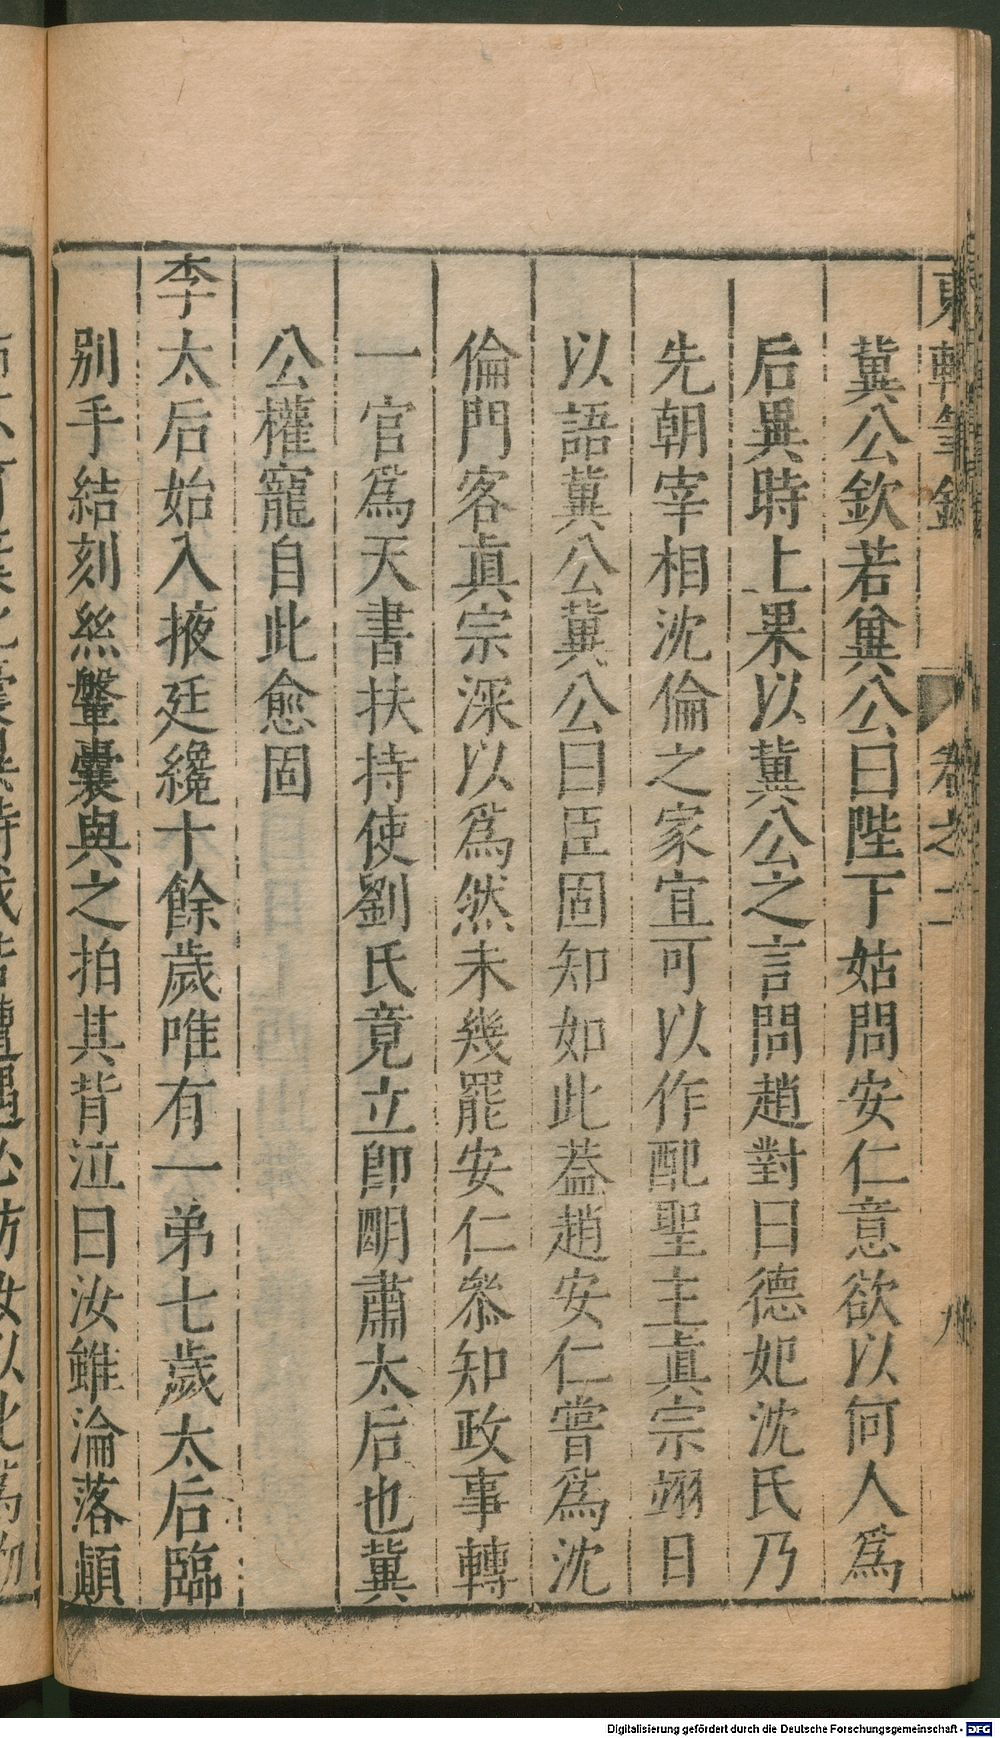 東軒筆錄 卷之二 九
冀公欽若兾公曰陛下姑問安仁意欲以何人爲
后異時上果以冀公之言問趙對曰德妃沈氏乃
先朝宰相沈倫之家宜可以作配聖主真宗翊日
以語冀公冀公曰臣固知如此葢趙安仁嘗爲沈
倫門客眞宗深以爲然未幾罷安仁叅知政事轉
一官爲天書扶持使劉氏竟立卽明肅太后也冀
公權寵自此愈固
李太后始入掖廷纔十餘歲唯有一弟七歲太后臨
别手結刻絲鞶囊與之拍其背泣曰汝雖淪落顚
Digitalisierung gefördert durch die Deutsche Forschungsgemeinschaft - DFG